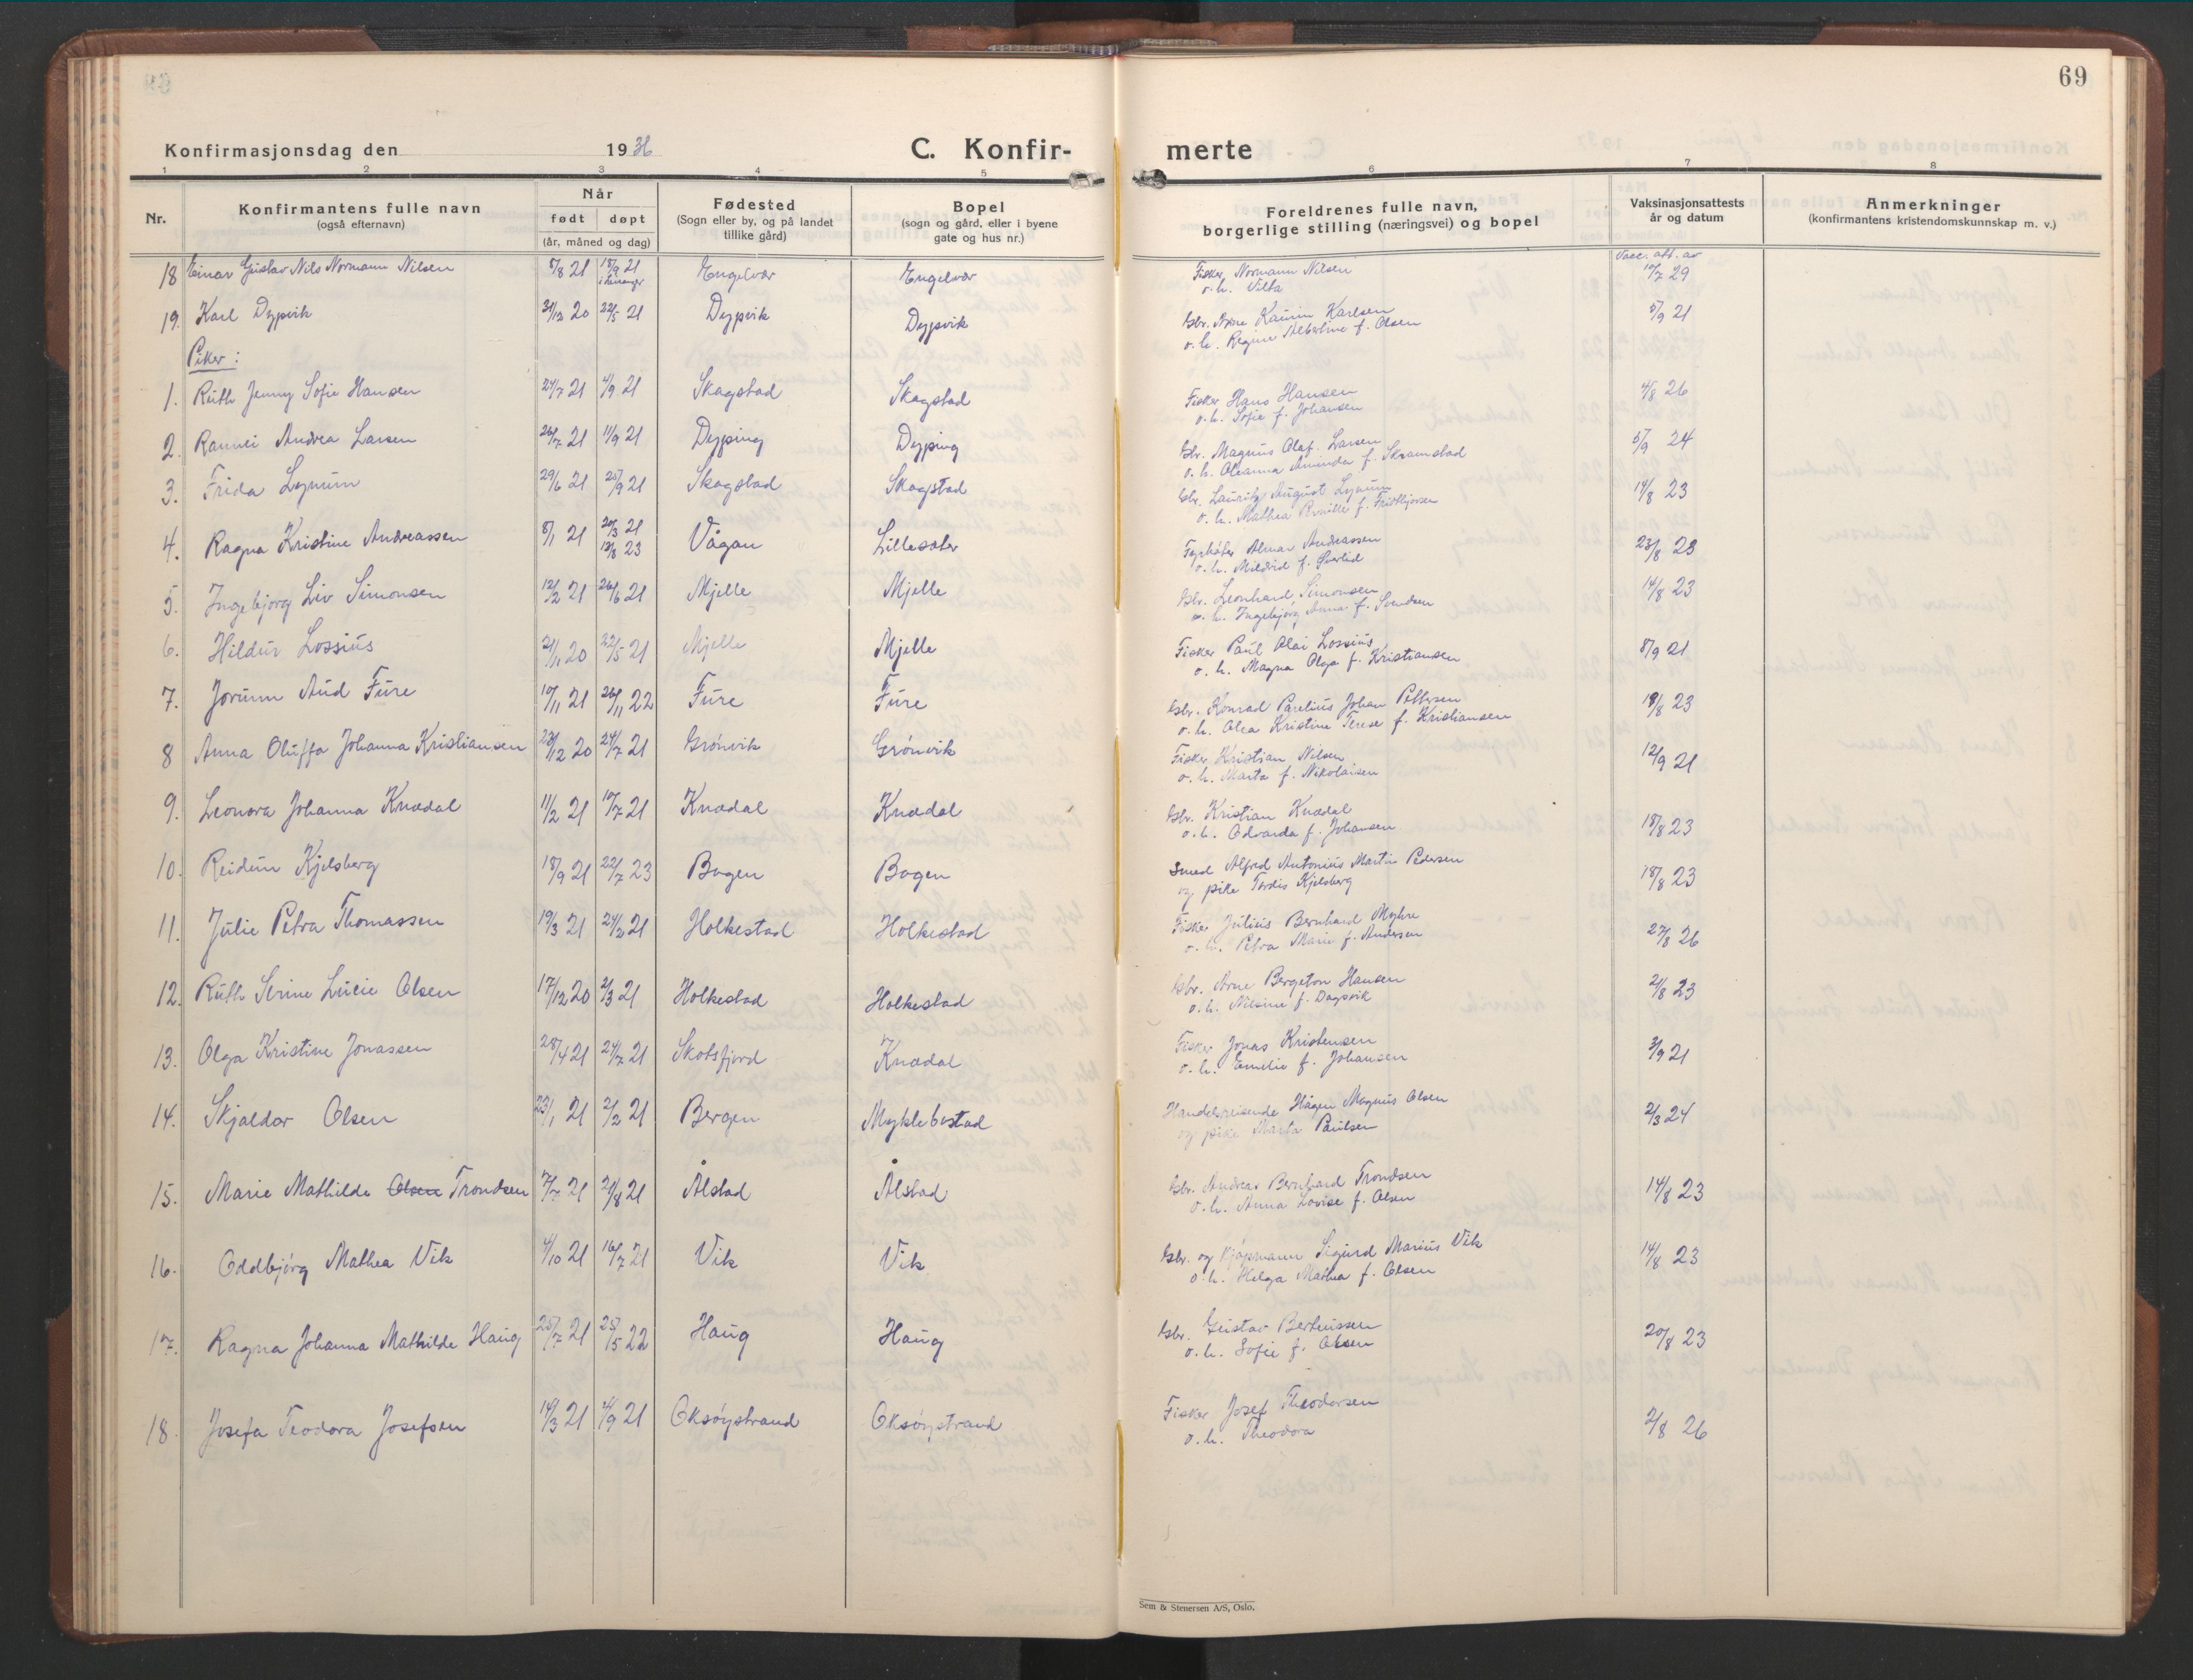 69
Konfirmasjonsdag den 1936 C. Konfir- merte
1 2 3 4 5 6 7 8
Nr. Konfirmantens fulle navn (også efternavn) Når født døpt (år, måned og dag) Fødested (Sogn eller by, og på landet tillike gård) Bopel (sogn og gård, eller i byene gate og hus nr.) Foreldrenes fulle navn, borgerlige stilling (næringsvei) og bopel Vaksinasjonsattests år og datum Anmerkninger (konfirmantens kristendomskunnskap m. v.)
Vacc. att. av
18 Einar Gustav Nils Normann Nilsen 8/8 21 18/9 21 Engelvær Engelvær Fisker Normann Nilsen 10/7 29
o. h.
19. Karl Dypvik 31/12 20 22/5 21 Dypvik Dypvik Gbr. Arne Kaurin Karlsen 5/9 21
o. h. Regine Albertine f. Olsen
Piker:
1. Ruth Jenny Sofie Hansen 24/7 21 4/9 21 Skagstad Skagstad Fisker Hans Hansen 4/8 26
o. h. Sofie f. Johansen
2. Rannei Andrea Larsen 26/7 21 11/9 21 Dyping Dyping Gbr. Magnus Olaf Larsen 5/9 24
o. h. Oleanna Aminda f. Skramstad
3. Frida Lynum 29/6 21 25/9 21 Skagstad Skagstad Gbr. Lauritz August Lynum 14/8 23
o. h. Mathea f. Fridthjofsen
4. Ragna Kristine Andreassen 8/1 21 20/3 21 Vågan Lillesæter Fyrbøter Almar Andreassen 23/8 23
12/8 23 o. h. Mildrid f.
5. Ingebjørg Liv Simonsen 12/2 21 26/6 21 Mjelle Mjelle Gbr. Leonhard Simonsen 14/8 23
o. h. Ingebjørg Anna f. Svendsen
6. Hildur Lossius 21/11 20 22/5 21 Mjelle Mjelle Fisker Paul Olai Lossius 8/9 21
o. h. Magna Olga f. Kristiansen
7. Jorunn Aud Fure 10/11 21 26/11 22 Fure Fure Gbr. Konrad Parelius Johan Pettersen 18/8 23
o. h. Olea Kristine Terese f. Kristiansen
8 Anna Oluffa Johanna Kristiansen 28/12 20 24/7 21 Grønvik Grønvik Fisker Kristian Nilsen 12/9 21
o. h. Marta f. Nikolaisen
9. Leonora Johanna Knædal 11/2 21 10/7 21 Knædal Knædal Gbr. Kristian Knædal 18/8 23
o. h. Edvarda f. Johansen
10. Reidun Kjelsberg 18/9 21 22/7 23 Bogen Bogen Smed Alfred Antonius Martin Pedersen 18/8 23
og pike Tordis Kjelsberg
11. Julie Petra Thomassen 19/3 21 24/2 21 Holkestad Holkestad Fisker Julius Bernhard Myhre 27/8 26
o. h. Petra Marie f. Andersen
12. Ruth Serine Lucie Olsen 17/12 20 2/3 21 Holkestad Holkestad Gbr. Arne Bergeton Hansen 2/8 23
o. h. Nilsine f. Dypvik
13. Olga Kristine Jonassen 28/4 21 24/7 21 Skotsfjord Knædal Fisker Jonas Kristensen 3/9 21
o. h. Emilie f. Johansen
14. Skjaldar Olsen 23/1 21 2/2 21 Bergen Myklebostad Handelsreisende Hågen Magnus Olsen 2/3 24
og pike Marta Paulsen
15. Marie Mathilde Olsen Trondsen 7/7 21 21/8 21 Ålstad Ålstad Gbr. Andreas Bernhard Trondsen 14/8 23
o. h. Anna Lovise f. Olsen
16. Oddbjørg Mathea Vik 4/10 21 16/7 21 Vik Vik Gbr. og kjøpmann Sigurd Marius Vik 14/8 23
o. h. Helga Mathea f. Olsen
17. Ragna Johanna Mathilde Haug 25/7 21 25/5 22 Haug Haug Gbr. Gustav Berteussen 20/8 23
o. h. Sofie f. Olsen
18. Josefa Teodora Josefsen 14/3 21 4/9 21 Oksøystrand Oksøystrand Fisker Josef Theodorsen 2/8 26
o. h. Theodora
Sem & Stenersen A/S, Oslo.